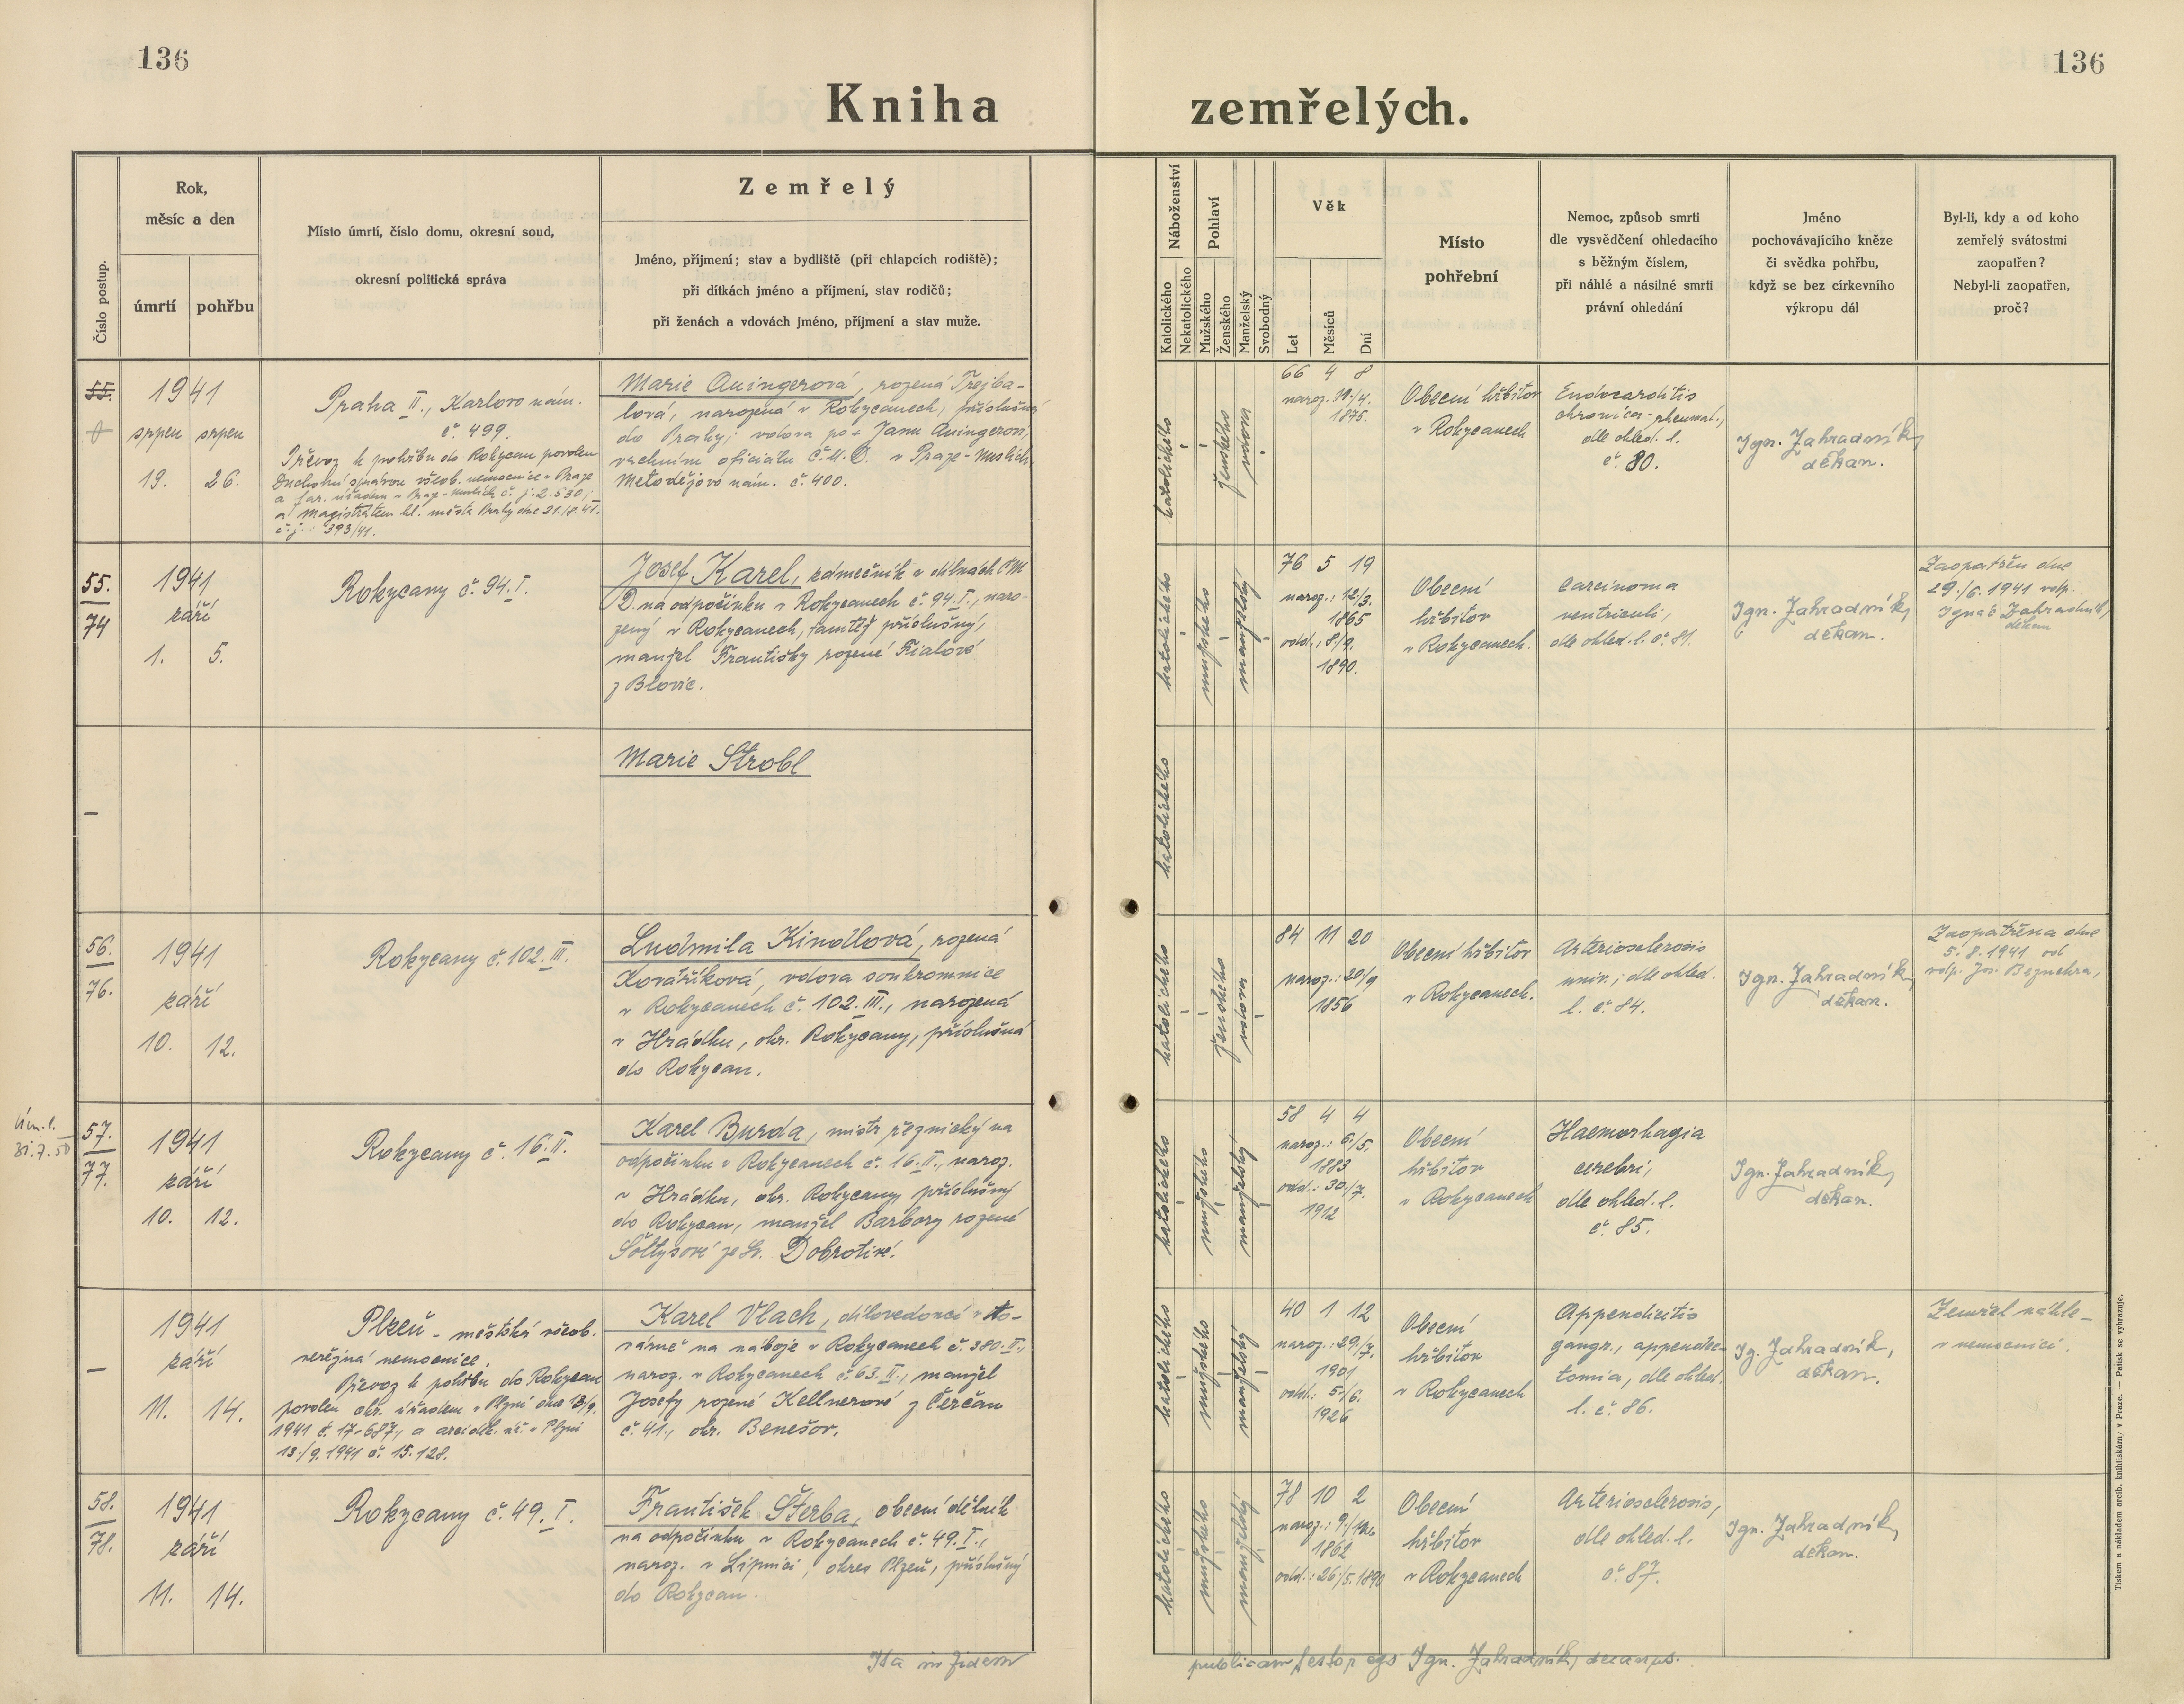 136
136
Kniha zemřelých.
Číslo postup.
Rok,
měsíc a den
úmrtí
pohřbu
Místo úmrtí, číslo domu, okresní soud,
okresní politická správa
Zemřelý
Jméno, příjmení; stav a bydliště (při chlapcích rodiště);
při dítkách jméno a příjmení, stav rodičů;
při ženách a vdovách jméno, příjmení a stav muže.
Náboženství
Katolického
Nekatolického
Pohlaví
Mužského
Ženského
Manželský
Svobodný
Věk
Let
Měsíců
Dní
Místo
pohřební
Nemoc, způsob smrti
dle vysvědčení ohledacího
s běžným číslem,
při náhlé a násilné smrti
právní ohledání
Jméno
pochovávajícího kněze
či svědka pohřbu,
když se bez církevního
výkropu dál
Byl-li, kdy a od koho
zemřelý svátostmi
zaopatřen?
Nebyl-li zaopatřen,
proč?
55.
1941
srpen srpen
19. 26.
Praha II., Karlovo nám.
č. 499.
Převoz k pohřbu do Rokycan povolen
Duchovní správou všeob. nemocnice v Praze
a far. úřadem v Praze - Nuslích č. j. 2.530;
a Magistrátem hl. města Prahy dne 21./8. 41.
č. j.: 393/41.
Marie Auingerová, rozená Trejba-
lová, narozená v Rokycanech, příslušná
do Prahy; vdova po + Janu Auingerovi,
vrchním oficiálu Č.M.D. v Praze - Nuslích,
Metodějovo nám. č. 400.
katolického
ženského
vdova
66 4 8
naroz. 11./4.
1875.
Obecní hřbitov
v Rokycanech
Endocarditis
chronica - rheumat.,
dle ohled. l.
č. 80.
Ign. Zahradník,
děkan.
55.
74
1941
září
1. 5.
Rokycany č. 94. I.
Josef Karel, zámečník v dílnách ČM
D. na odpočinku v Rokycanech č. 94. I., naro-
zený v Rokycanech, tamtéž příslušný,
manžel Františky rozené Fialové
z Blovic.
katolického
mužského
manželský
76 5 19
naroz.: 12/3.
1865
odd.: 8/9.
1890.
Obecní
hřbitov
v Rokycanech.
Carcinoma
ventriculi,
dle ohled. l. č. 81.
Ign. Zahradník,
děkan.
Zaopatřen dne
29./6. 1941 vdp.
Ignác Zahradník,
děkan
—
Marie Strobl
katolického
56.
76.
1941
září
10. 12.
Rokycany č. 102. III.
Ludmila Kindlová, rozená
Kovaříková, vdova soukromnice
v Rokycanech č. 102. III., narozená
v Hrádku, okr. Rokycany, příslušná
do Rokycan.
katolického
ženského
vdova
84 11 20
naroz.: 20/9
1856
Obecní hřbitov
v Rokycanech.
Arteriosclerosis
univ.; dle ohled.
l. č. 84.
Ign. Zahradník,
děkan.
Zaopatřena dne
5. 8. 1941 od
vdp. Jos. Beznehra,
Úm. l.
31. 7. 50
57.
77.
1941
září
10. 12.
Rokycany č. 16. II.
Karel Burda, mistr řeznický na
odpočinku v Rokycanech č. 16. II., naroz.
v Hrádku, okr. Rokycany, příslušný
do Rokycan, manžel Barbory rozené
Šoltysové ze Sv. Dobrotivé.
katolického
mužského
manželský
58 4 4
naroz.: 6./5.
1883
odd.: 30./7.
1912
Obecní
hřbitov
v Rokycanech
Haemorhagia
cerebri,
dle ohled. l.
č. 85.
Ign. Zahradník,
děkan.
—
1941
září
11. 14.
Plzeň - městská všeob.
veřejná nemocnice.
Převoz k pohřbu do Rokycan
povolen okr. úřadem v Plzni dne 13/9.
1941 č. 17-687, a arciděk. úř. v Plzni
13./9. 1941 č. 15.128.
Karel Vlach, dílovedoucí v to-
várně na náboje v Rokycanech č. 380. II.,
naroz. v Rokycanech č. 63. II., manžel
Josefy rozené Kellnerové z Čerčan
č. 41., okr. Benešov.
katolického
mužského
manželský
40 1 12
naroz.: 29./7.
1901
odd.: 5./6.
1926
Obecní
hřbitov
v Rokycanech
Appendicitis
gangr., appendec-
tomia, dle ohled.
l. č. 86.
Ig. Zahradník,
děkan.
Zemřel náhle -
v nemocnici.
58.
78.
1941
září
11. 14.
Rokycany č. 49. I.
František Šterba, obecní dělník
na odpočinku v Rokycanech č. 49. I.,
naroz. v Lipnici, okres Plzeň, příslušný
do Rokycan.
katolického
mužského
manželský
78 10 2
naroz.: 9./11.
1862
odd.: 26./5. 1890
Obecní
hřbitov
v Rokycanech
Arteriosclerosis,
dle ohled. l.
č. 87.
Ign. Zahradník,
děkan.
Ita in fidem publicam testor ego Ign. Zahradník, decanus.
Tiskem a nákladem arcib. knihtiskárny v Praze. — Patisk se vyhrazuje.